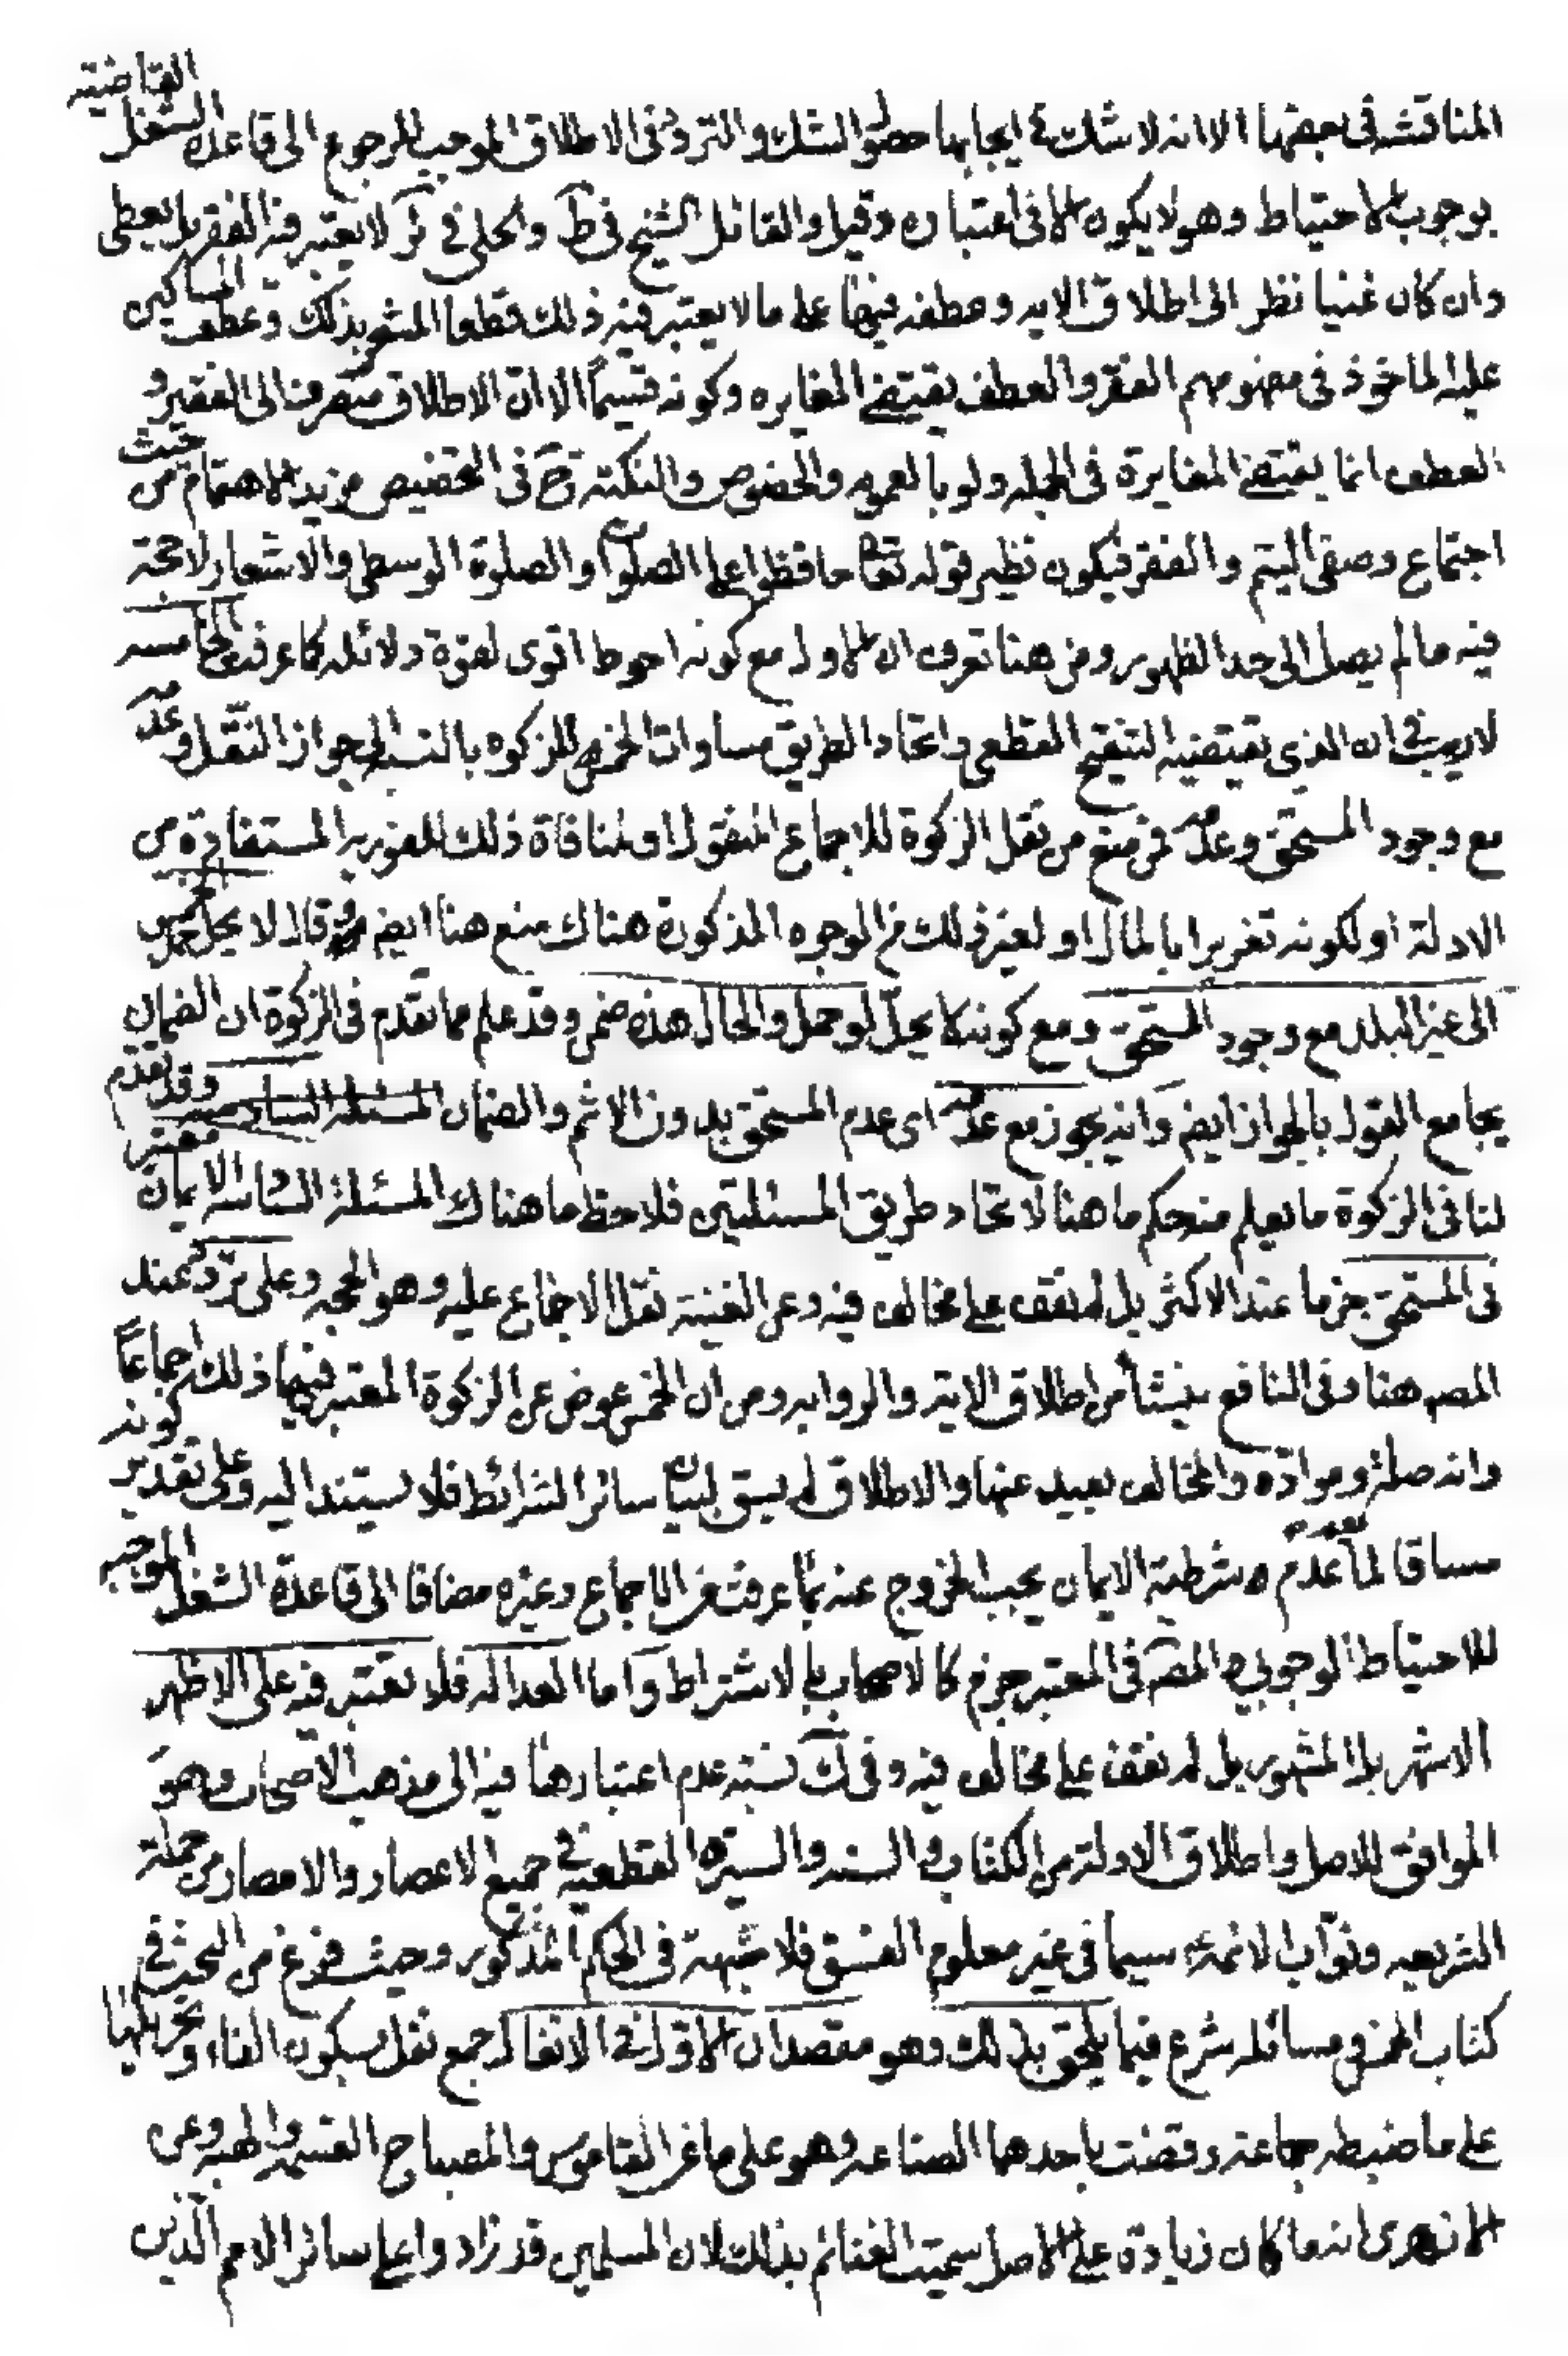 المناقشة فى بعضها الا انه لا شك فى ايجابها حصول الشك و التردد فى الاطلاق الموجب للرجوع الى قاعدة الشغل القاضية
بوجوب الاحتياط وهو لا يكون الا فى اعتباره وقيل والقائل الشيخ فى ط والحلى فى ئر لا يعتبر فيه الفقر بل يعطى
وان كان غنيا نظر الى اطلاق الايه وعطفه فيها على ما لا يعتبر فيه ذلك قطعا المشعر بذلك وعطف المساكين
عليه الماخوذ فى مفهومهم الفقر والعطف يقتضى المغايره وكونه قسيماً الا ان الاطلاق منصرف الى الفقير و
العطف انما يقتضى المغايرة فى الجمله ولو بالعموم والخصوص والنكتة ح فى التخصيص مزيد الاهتمام من حيث
اجتماع وصفى اليتم والفقر فيكون نظير قوله تعالى حافظوا على الصلوات والصلوة الوسطى والاشعار لا حجة
فيه ما لم يصل الى حد الظهور ومن هنا تعرف ان الاول مع كونه احوط اقوى لقوة دلائله كما عرفت الخامسه
لا ريب فى ان الذى يقتضيه التنقيح القطعى واتحاد الطريق مساوات الخمس للزكوه بالنسبة الى جواز النقل وعدمه
مع وجود المستحق وعدمه فمن منع من نقل الزكوة للاجماع المنقول او لمنافاة ذلك للفورية المستفادة من
الادلة او لكونه تغريرا بالمال او لغير ذلك من الوجوه المذكورة هناك منع هنا ايضا وقال لا يحل حمل الخمس
الى غير البلد مع وجود المستحق ومع كونه لا يحل لو حمل والحال هذه ضمن وقد علم مما تقدم فى الزكوة ان الضمان
يجامع القول بالجواز ايضا وانه يجوز مع عدمه اى عدم المستحق بدون الاثم والضمان المسئلة السادسه وقد تقدم
لنا فى الزكوة ما يعلم منه حكم ما هنا لاتحاد طريق المسئلتين فلاحظ ما هناك المسئلة السادسة الايمان معتبر
فى المستحق جزما عند الاكثر بل لم نقف على مخالف فيه وعن الغنية نقل الاجماع عليه وهو الحجه وعلى تردد عند
المصه هنا وفى النافع ينشأ من اطلاق الاية والروايه ومن ان الخمس عوض عن الزكوة المعتبر فيها ذلك اجماعاً
وانه صلة وموادة والمخالف بعيد عنها والاطلاق لم يسق لبيان سائر الشرائط فلا يستند اليه وعلى تقدير كونه
مساقا لما عدم شرطية الايمان يجب الخروج عنه بما عرفت من الاجماع وغيره مضافا الى قاعدة الشغل الموجبه
للاحتياط الوجوبى والمصه فى المعتبر جزم كالاصحاب بالاشتراط واما العداله فلا تعتبر فيه على الاظهر
الاشهر بل المشهور بل لم نقف على مخالف فيه وفى ك نسبة عدم اعتبارها فيه الى مذهب الاصحاب وهو
الموافق للاصل واطلاق الادلة من الكتاب والسنه والسيرة القطعية فى جميع الاعصار والامصار من حملة
الشريعه ونواب الائمة سيما فى غير معلوم الفسق فلا شبهة فى الحكم المذكور وحيث فرغ من البحث فى
كتاب الخمس فى مسائله شرع فيما يلحق بذلك وهو مقصدان الاول فى الانفال جمع نفل بسكون الفاء وتحريكها
على ما ضبطه جماعة وقضت باحدهما الصناعه وهو على ما عن القاموس والمصباح الغنيمة والهبه وعن
الازهرى انه ما كان زيادة على الاصل سميت الغنائم بذلك لان المسلمين قد زادوا على سائر الامم الذين